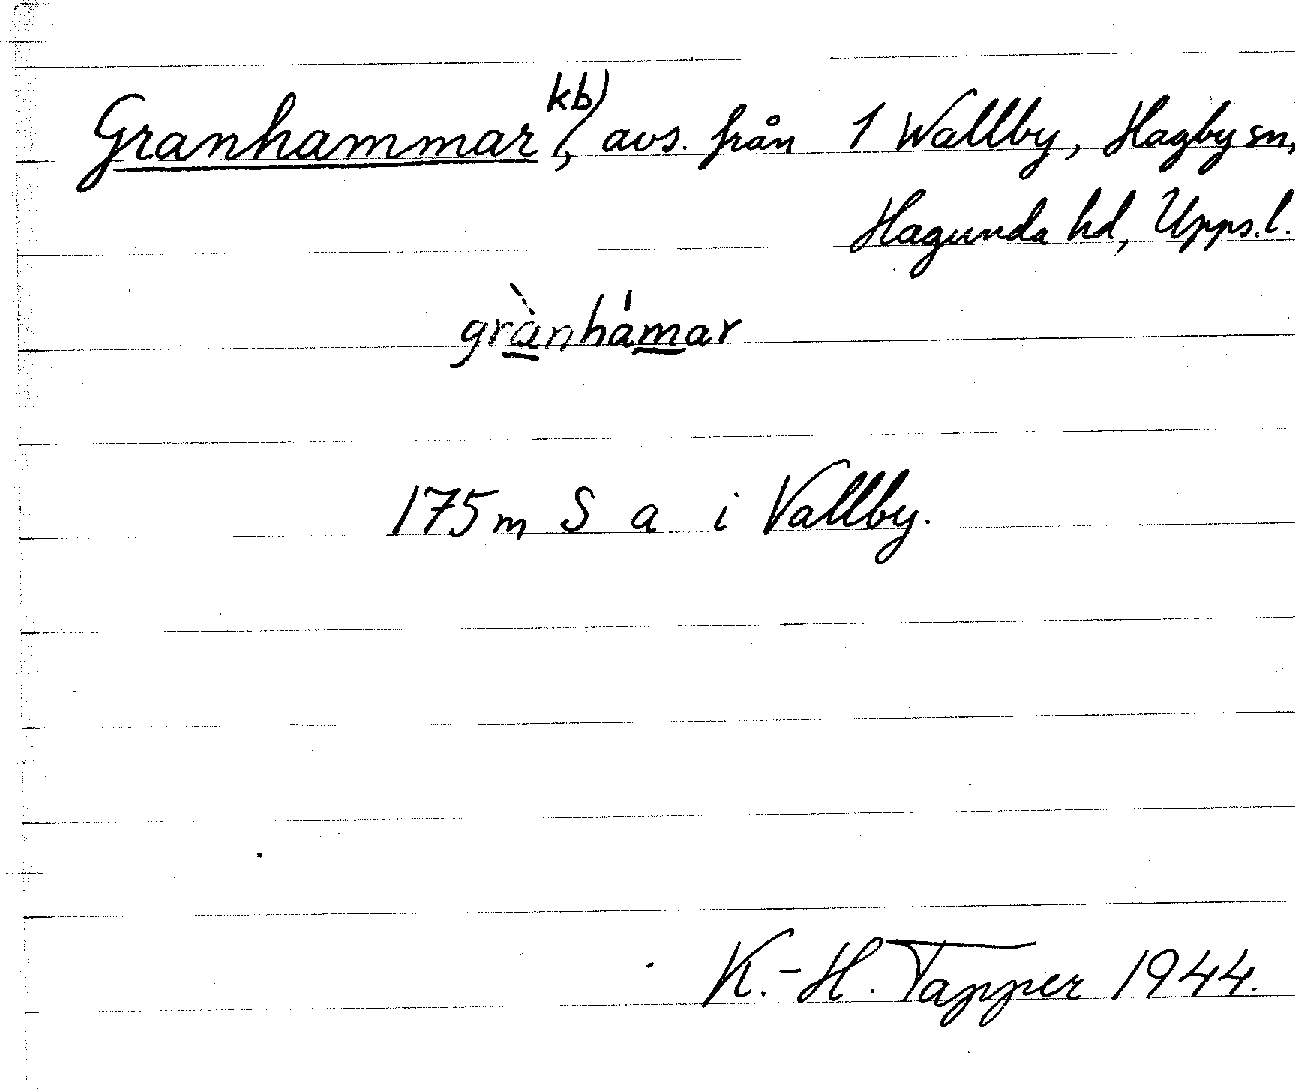 Granhammar, kb) avs. från 1 Wallby, Hagby sn,
Hagunda hd, Upps.l.
grànhámar
175 m S a i Vallby.
K.-H. Tapper 1944.